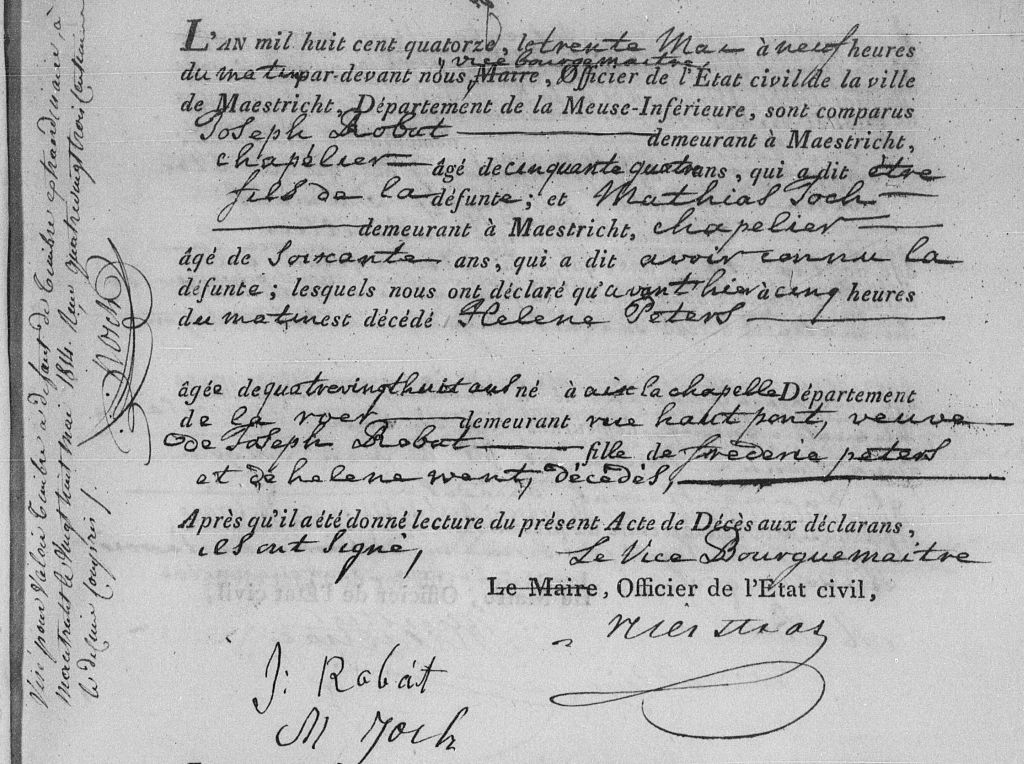 L'AN mil huit cent quatorze, le trente Mai à neuf heures
du matin par-devant nous, vice bourgemaitre, Maire, Officier de l'État civil de la ville
de Maestricht, Département de la Meuse-Inférieure, sont comparus
Joseph Robat demeurant à Maestricht,
chapélier âgé de cinquante quatre ans, qui a dit être
fils de la défunte; et Mathias Joch
demeurant à Maestricht, chapelier
âgé de Soixante ans, qui a dit avoir connu la
défunte; lesquels nous ont déclaré qu'avant hier à cinq heures
du matin est décédé Helene Peters
âgée de quatrevingt huit ans né à aix la chapelle Département
de la roer demeurant rue haut pont, veuve
de Joseph Robat fille de frederic peters
et de helene went, décédés,
Après qu'il a été donné lecture du présent Acte de Décès aux déclarans,
ils ont Signé, Le Vice Bourguemaitre
Le Maire, Officier de l'État civil,
J: Robat
M Joch
Visé pour Valoir timbre à défaut de timbre extraordinaire, à
Maestricht le vingt huit mai 1814. Reçu quatre vingt trois centimes